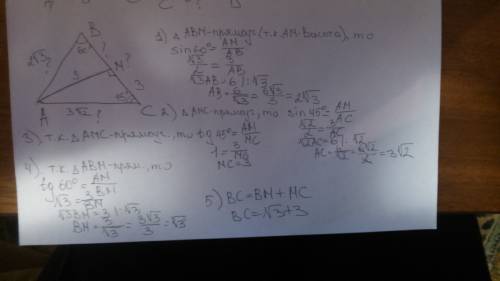 C = ? D
B
60°
2√3 ?
?
M
3
3
45°
A
3√2 ?
C
1) Δ ABM-прямоуг (т.к. AM-высота), то
sin60°= AM/AB
√3/2 = 3/AB
√3AB=6 |:√3
AB= 6/√3 = 6√3/3 = 2√3
2) Δ AMC-прямоуг, то sin45°= AM/AC
√2/2 = 3/AC
√2AC=6 |:√2
AC= 6/√2 = 6√2/2 = 3√2
3) т.к. Δ AMC-прямоуг, то tg 45°= AM/MC
1= 3/MC
MC=3
4) т.к. Δ ABM-прям., то
tg 60°= AM/BM
√3 = 3/BM
√3BM=3 |:√3
BM= 3/√3 = 3√3/3 = √3
5) BC=BM+MC
BC=√3+3